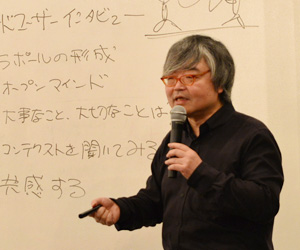 ドユーザーインタビュー
ラポールの形成
オープンマインド
大事なこと、大切なことは
コンテクストを聞いてみる
共感する